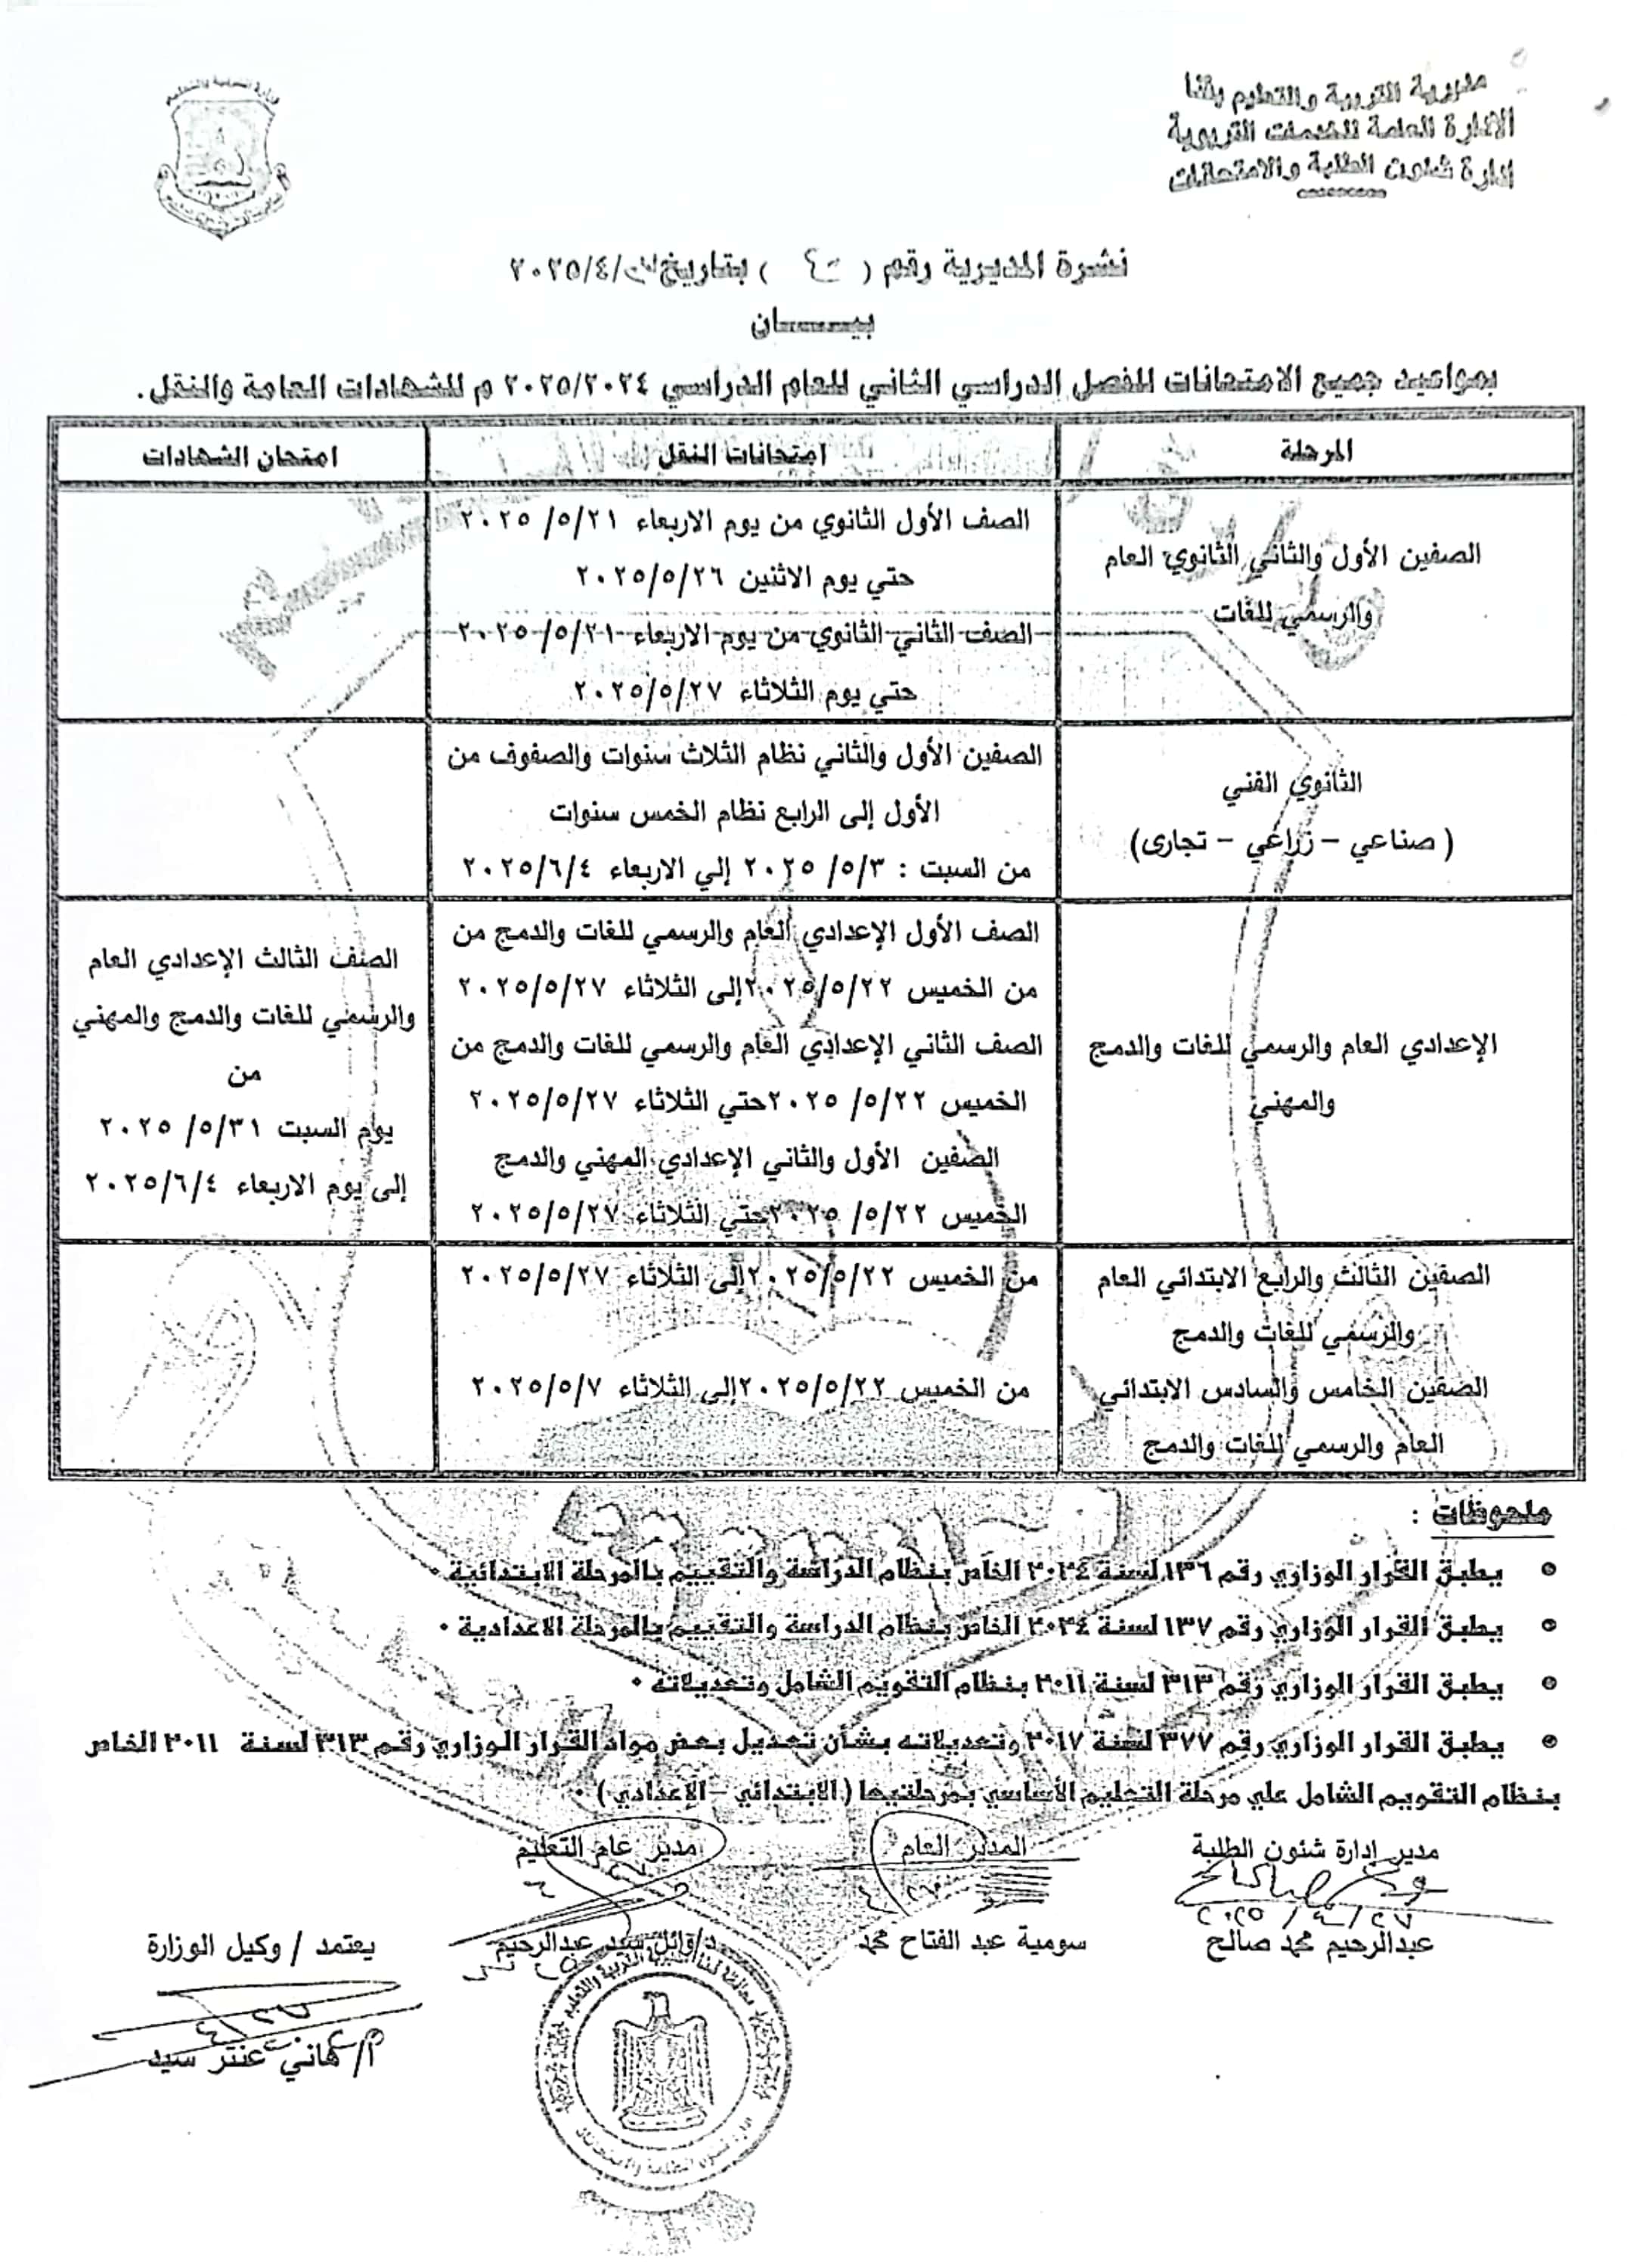 مديرية التربية والتعليم بقنا
الادارة العامة للخدمات التربوية
إدارة شئون الطلبة والامتحانات
نشرة المديرية رقم ( ) بتاريخ /٢٠٢٥/٤
بيـــــــان
بمواعيد جميع الامتحانات للفصل الدراسي الثاني للعام الدراسي ٢٠٢٥/٢٠٢٤ م للشهادات العامة والنقل.
المرحلة
امتحانات النقل
امتحان الشهادات
الصفين الأول والثاني الثانوي العام
والرسمي للغات
الصف الأول الثانوي من يوم الاربعاء ٢٠٢٥ /٥/٢١
حتي يوم الاثنين ٢٠٢٥/٥/٢٦
الصف الثاني الثانوي من يوم الاربعاء ٢٠٢٥/٥/٢١
حتي يوم الثلاثاء ٢٠٢٥/٥/٢٧
الثانوي الفني
( صناعي – زراعي – تجارى)
الصفين الأول والثاني نظام الثلاث سنوات والصفوف من
الأول إلى الرابع نظام الخمس سنوات
من السبت : ٢٠٢٥ /٥/٣ إلي الاربعاء ٢٠٢٥/٦/٤
الإعدادي العام والرسمي للغات والدمج
والمهني
الصف الأول الإعدادي العام والرسمي للغات والدمج من
من الخميس ٢٠٢٥/٥/٢٢إلى الثلاثاء ٢٠٢٥/٥/٢٧
الصف الثاني الإعدادي العام والرسمي للغات والدمج من
الخميس ٢٠٢٥ /٥/٢٢حتي الثلاثاء ٢٠٢٥/٥/٢٧
الصفين الأول والثاني الإعدادي المهني والدمج
الخميس ٢٠٢٥ /٥/٢٢حتي الثلاثاء ٢٠٢٥/٥/٢٧
الصف الثالث الإعدادي العام
والرسمي للغات والدمج والمهني
من
يوم السبت ٢٠٢٥ /٥/٣١
إلى يوم الاربعاء ٢٠٢٥/٦/٤
الصفين الثالث والرابع الابتدائي العام
والرسمي للغات والدمج
الصفين الخامس والسادس الابتدائي
العام والرسمي للغات والدمج
من الخميس ٢٠٢٥/٥/٢٢إلى الثلاثاء ٢٠٢٥/٥/٢٧
من الخميس ٢٠٢٥/٥/٢٢إلى الثلاثاء ٢٠٢٥/٥/٧
ملحوظات :
• يطبق القرار الوزاري رقم ١٣٦ لسنة ٢٠٢٤ الخاص بنظام الدراسة والتقييم بالمرحلة الابتدائية .
• يطبق القرار الوزاري رقم ١٣٧ لسنة ٢٠٢٤ الخاص بنظام الدراسة والتقييم بالمرحلة الاعدادية .
• يطبق القرار الوزاري رقم ٣١٣ لسنة ٢٠١١ بنظام التقويم الشامل وتعديلاته .
• يطبق القرار الوزاري رقم ٣٧٧ لسنة ٢٠١٧ وتعديلاته بشأن تعديل بعض مواد القرار الوزاري رقم ٣١٣ لسنة ٢٠١١ الخاص
بنظام التقويم الشامل علي مرحلة التعليم الأساسي بمرحلتيها (الابتدائي –الإعدادي) .
مدير إدارة شئون الطلبة
المدير العام
مدير عام التعليم
٢٠٢٥/٤/٢٧
عبدالرحيم محمد صالح
سومية عبد الفتاح محمد
د/وائل سيد عبدالرحيم
يعتمد / وكيل الوزارة
٤/٢٧
أ/ هاني عنتر سيد